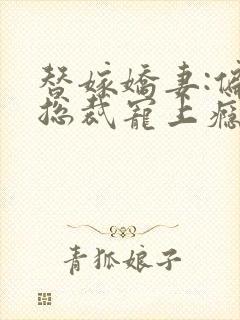 替嫁嬌妻:偏
總裁寵上癮
青狐娘子